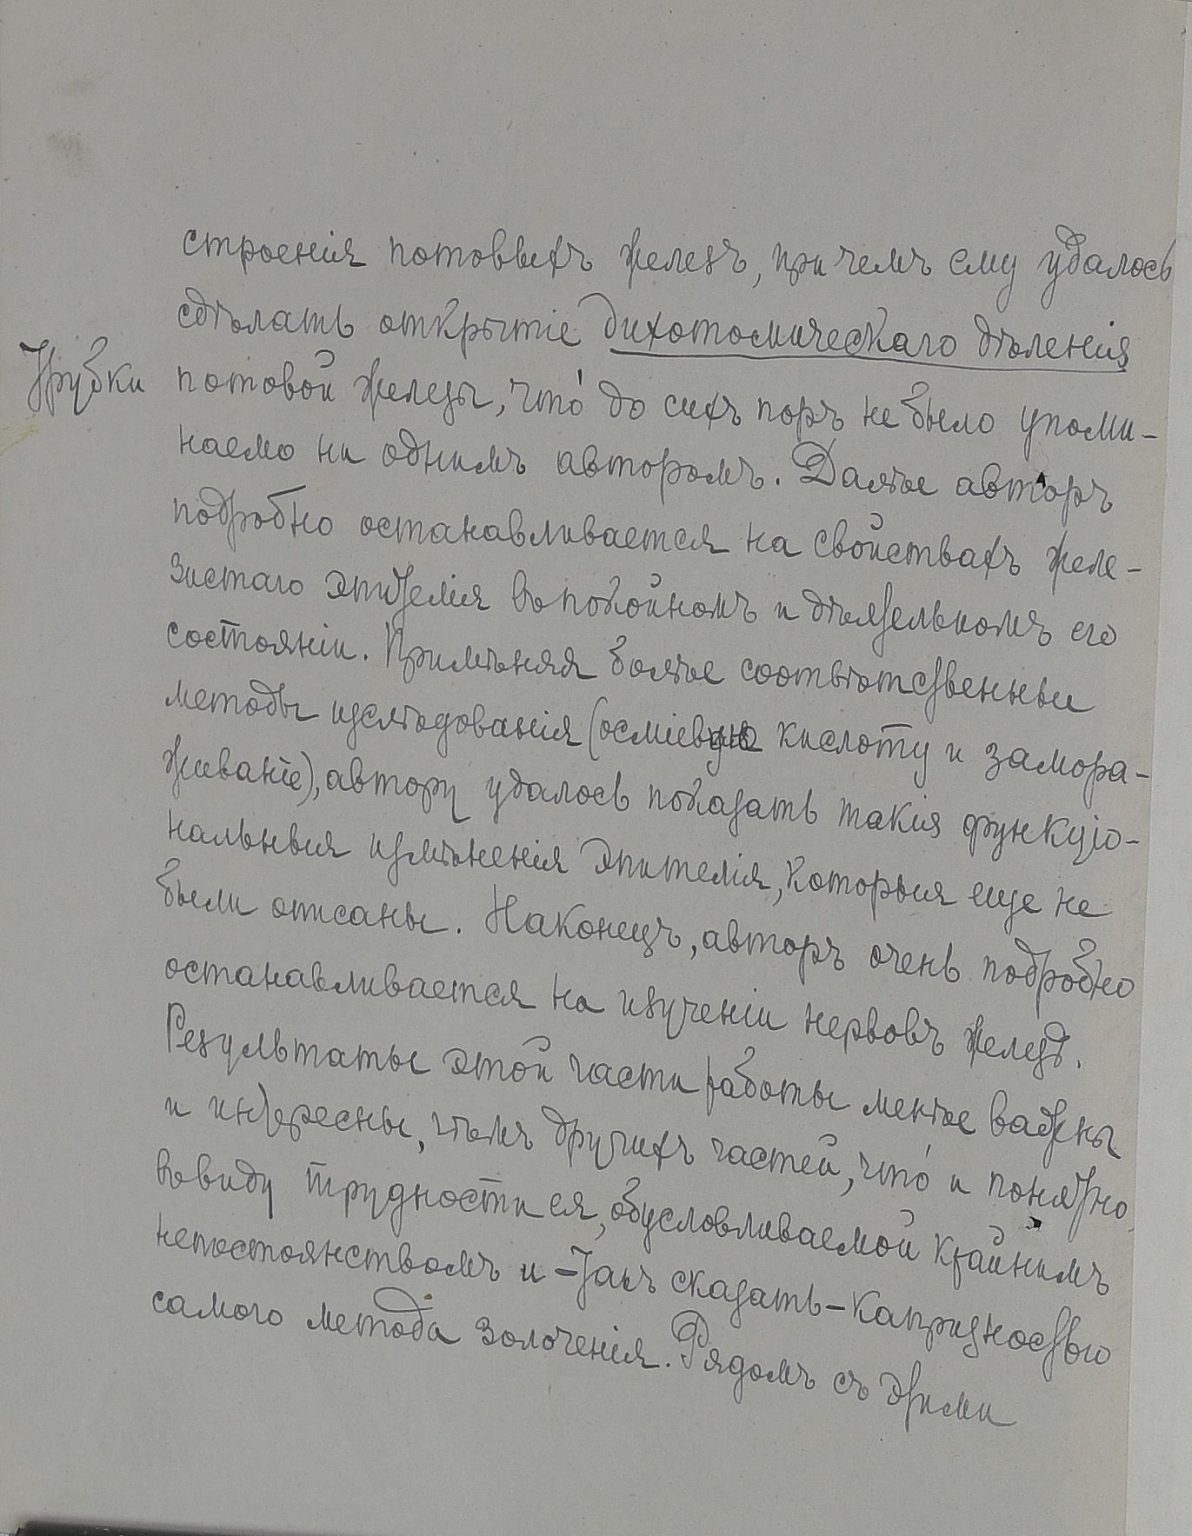 строенія потовыхъ железъ, при чемъ ему удалось
сдѣлать открытіе дихотомическаго дѣленія
трубки
потовой железы, что́ до сихъ поръ не было упоми-
наемо ни однимъ авторомъ. Далѣе авторъ
подробно останавливается на свойствахъ желе-
зистаго эпителія въ покойномъ и дѣятельномъ его
состояніи. Примѣняя болѣе соотвѣтственныи
методы изслѣдованія (осміевую кислоту и замора-
живаніе), автору удалось показать такія функціо-
нальныя измѣненія эпителія, которыя еще не
были описаны. Наконецъ, авторъ очень подробно
останавливается на изученіи нервовъ железъ.
Результаты этой части работы менѣе важны
и интересны, чѣмъ другихъ частей, что́ и понятно
въ виду трудности ея, обусловливаемой крайнимъ
непостоянствомъ и – такъ сказать – капризностью
самого метода золоченія. Рядомъ съ этими